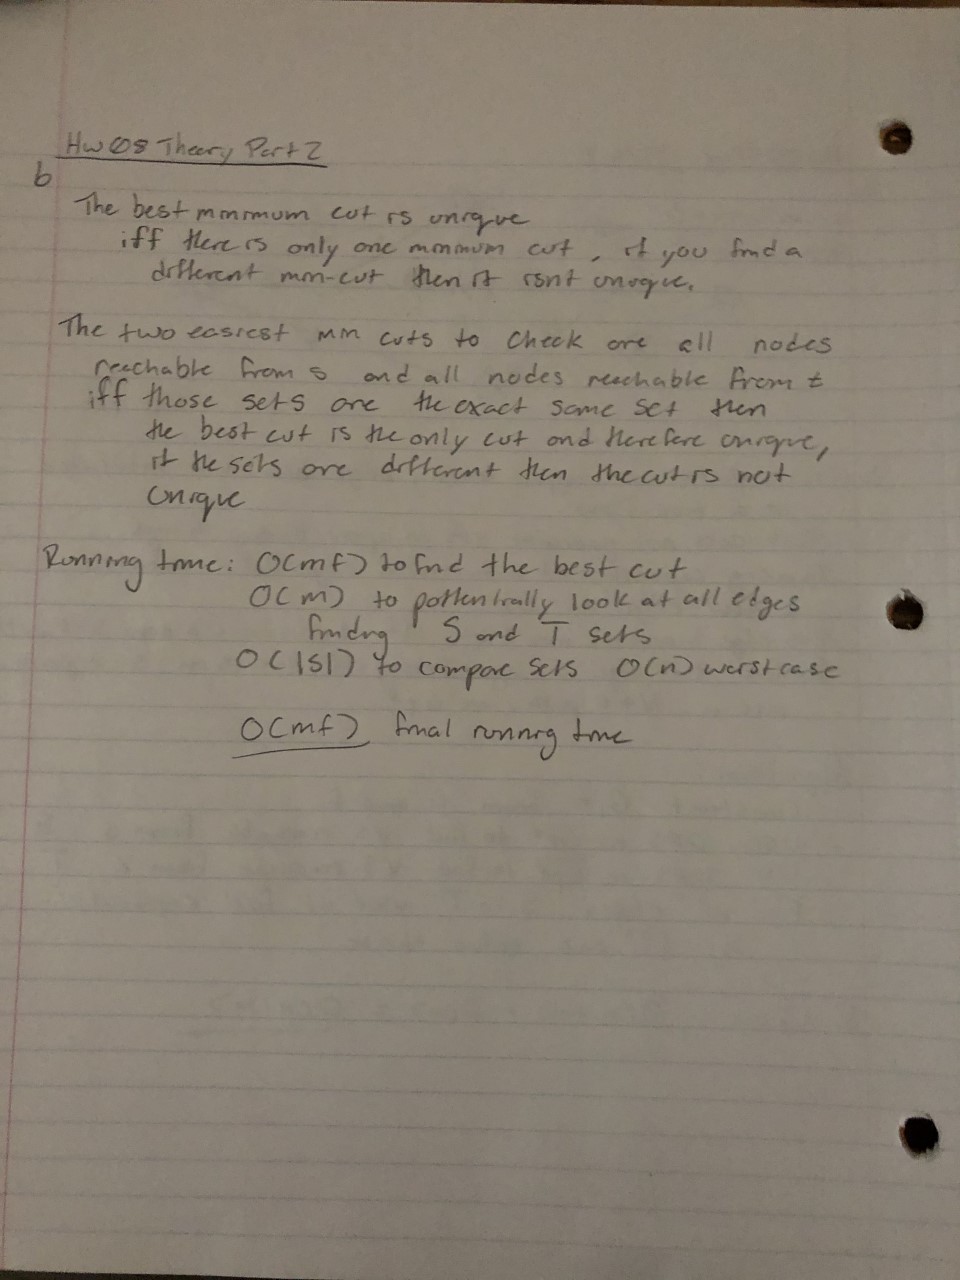 Hw 08 Theory Part 2
b
The best minimum cut is unique
iff there is only one minimum cut, if you find a
different min-cut then it isnt unique.
The two easiest min cuts to check are all nodes
reachable from s and all nodes reachable from t
iff those sets are the exact same set then
the best cut is the only cut and therefore unique,
if the sets are different then the cut is not
unique
Running time: O(mf) to find the best cut
O(m) to pottentially look at all edges
finding S and T sets
O(|S|) to compare sets O(n) worst case
O(mf) final running time